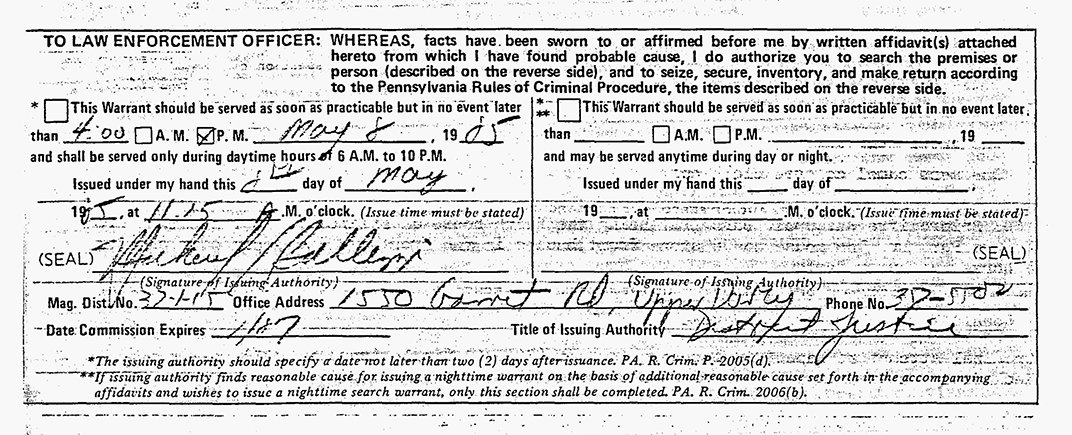 TO LAW ENFORCEMENT OFFICER: WHEREAS, facts have been sworn to or affirmed before me by written affidavit(s) attached
hereto from which I have found probable cause, I do authorize you to search the premises or
person (described on the reverse side), and to seize, secure, inventory, and make return according
to the Pennsylvania Rules of Criminal Procedure, the items described on the reverse side.
* This Warrant should be served as soon as practicable but in no event later
than 4:00 A. M. P. M. May 8, 1985
and shall be served only during daytime hours of 6 A.M. to 10 P.M.
Issued under my hand this day of May.
19 , at 11:15 A.M. o'clock. (Issue time must be stated)
(SEAL)
(Signature of Issuing Authority)
*
** This Warrant should be served as soon as practicable but in no event later
than A.M. P.M. , 19
and may be served anytime during day or night.
Issued under my hand this day of .
19 , at .M. o'clock. (Issue time must be stated)
(SEAL)
(Signature of Issuing Authority)
Mag. Dist. No. Office Address 1550 Garret Rd, Upper Darby Phone No.
Date Commission Expires 1/87 Title of Issuing Authority District Justice
*The issuing authority should specify a date not later than two (2) days after issuance. PA. R. Crim. P. 2005(d).
**If issuing authority finds reasonable cause for issuing a nighttime warrant on the basis of additional reasonable cause set forth in the accompanying
affidavits and wishes to issue a nighttime search warrant, only this section shall be completed. PA. R. Crim. 2006(b).